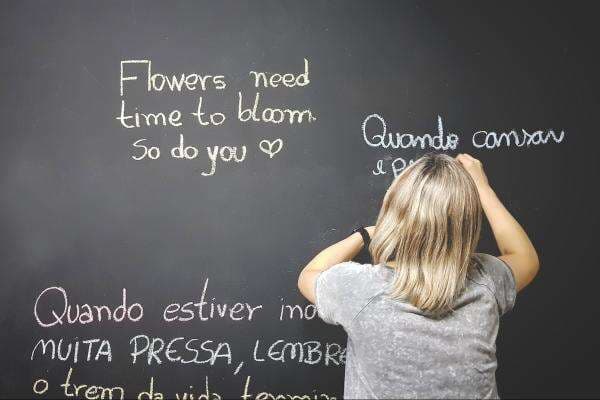 Flowers need
time to bloom.
So do you ♡
Quando cansar
e
Quando estiver
MUITA PRESSA, LEMBRE
o trem da vida